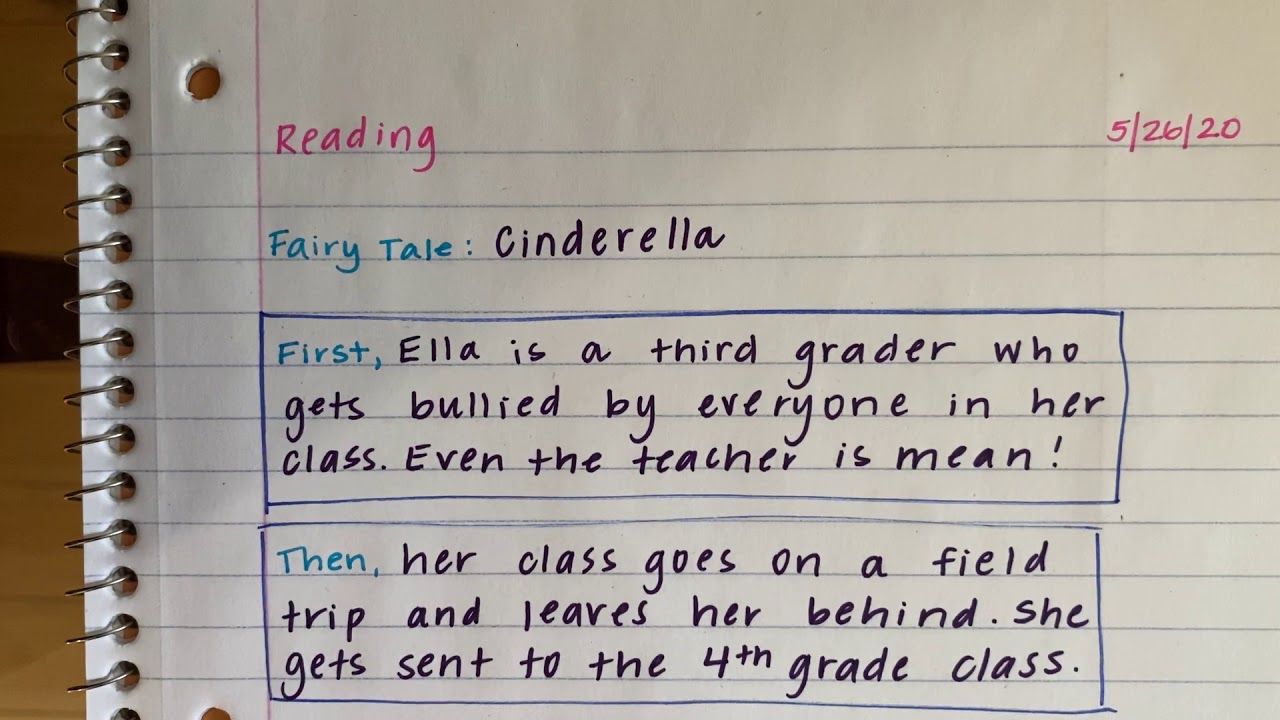 Reading 5/26/20
Fairy Tale: Cinderella
First, Ella is a third grader who
gets bullied by everyone in her
class. Even the teacher is mean!
Then, her class goes on a field
trip and leaves her behind. She
gets sent to the 4th grade class.